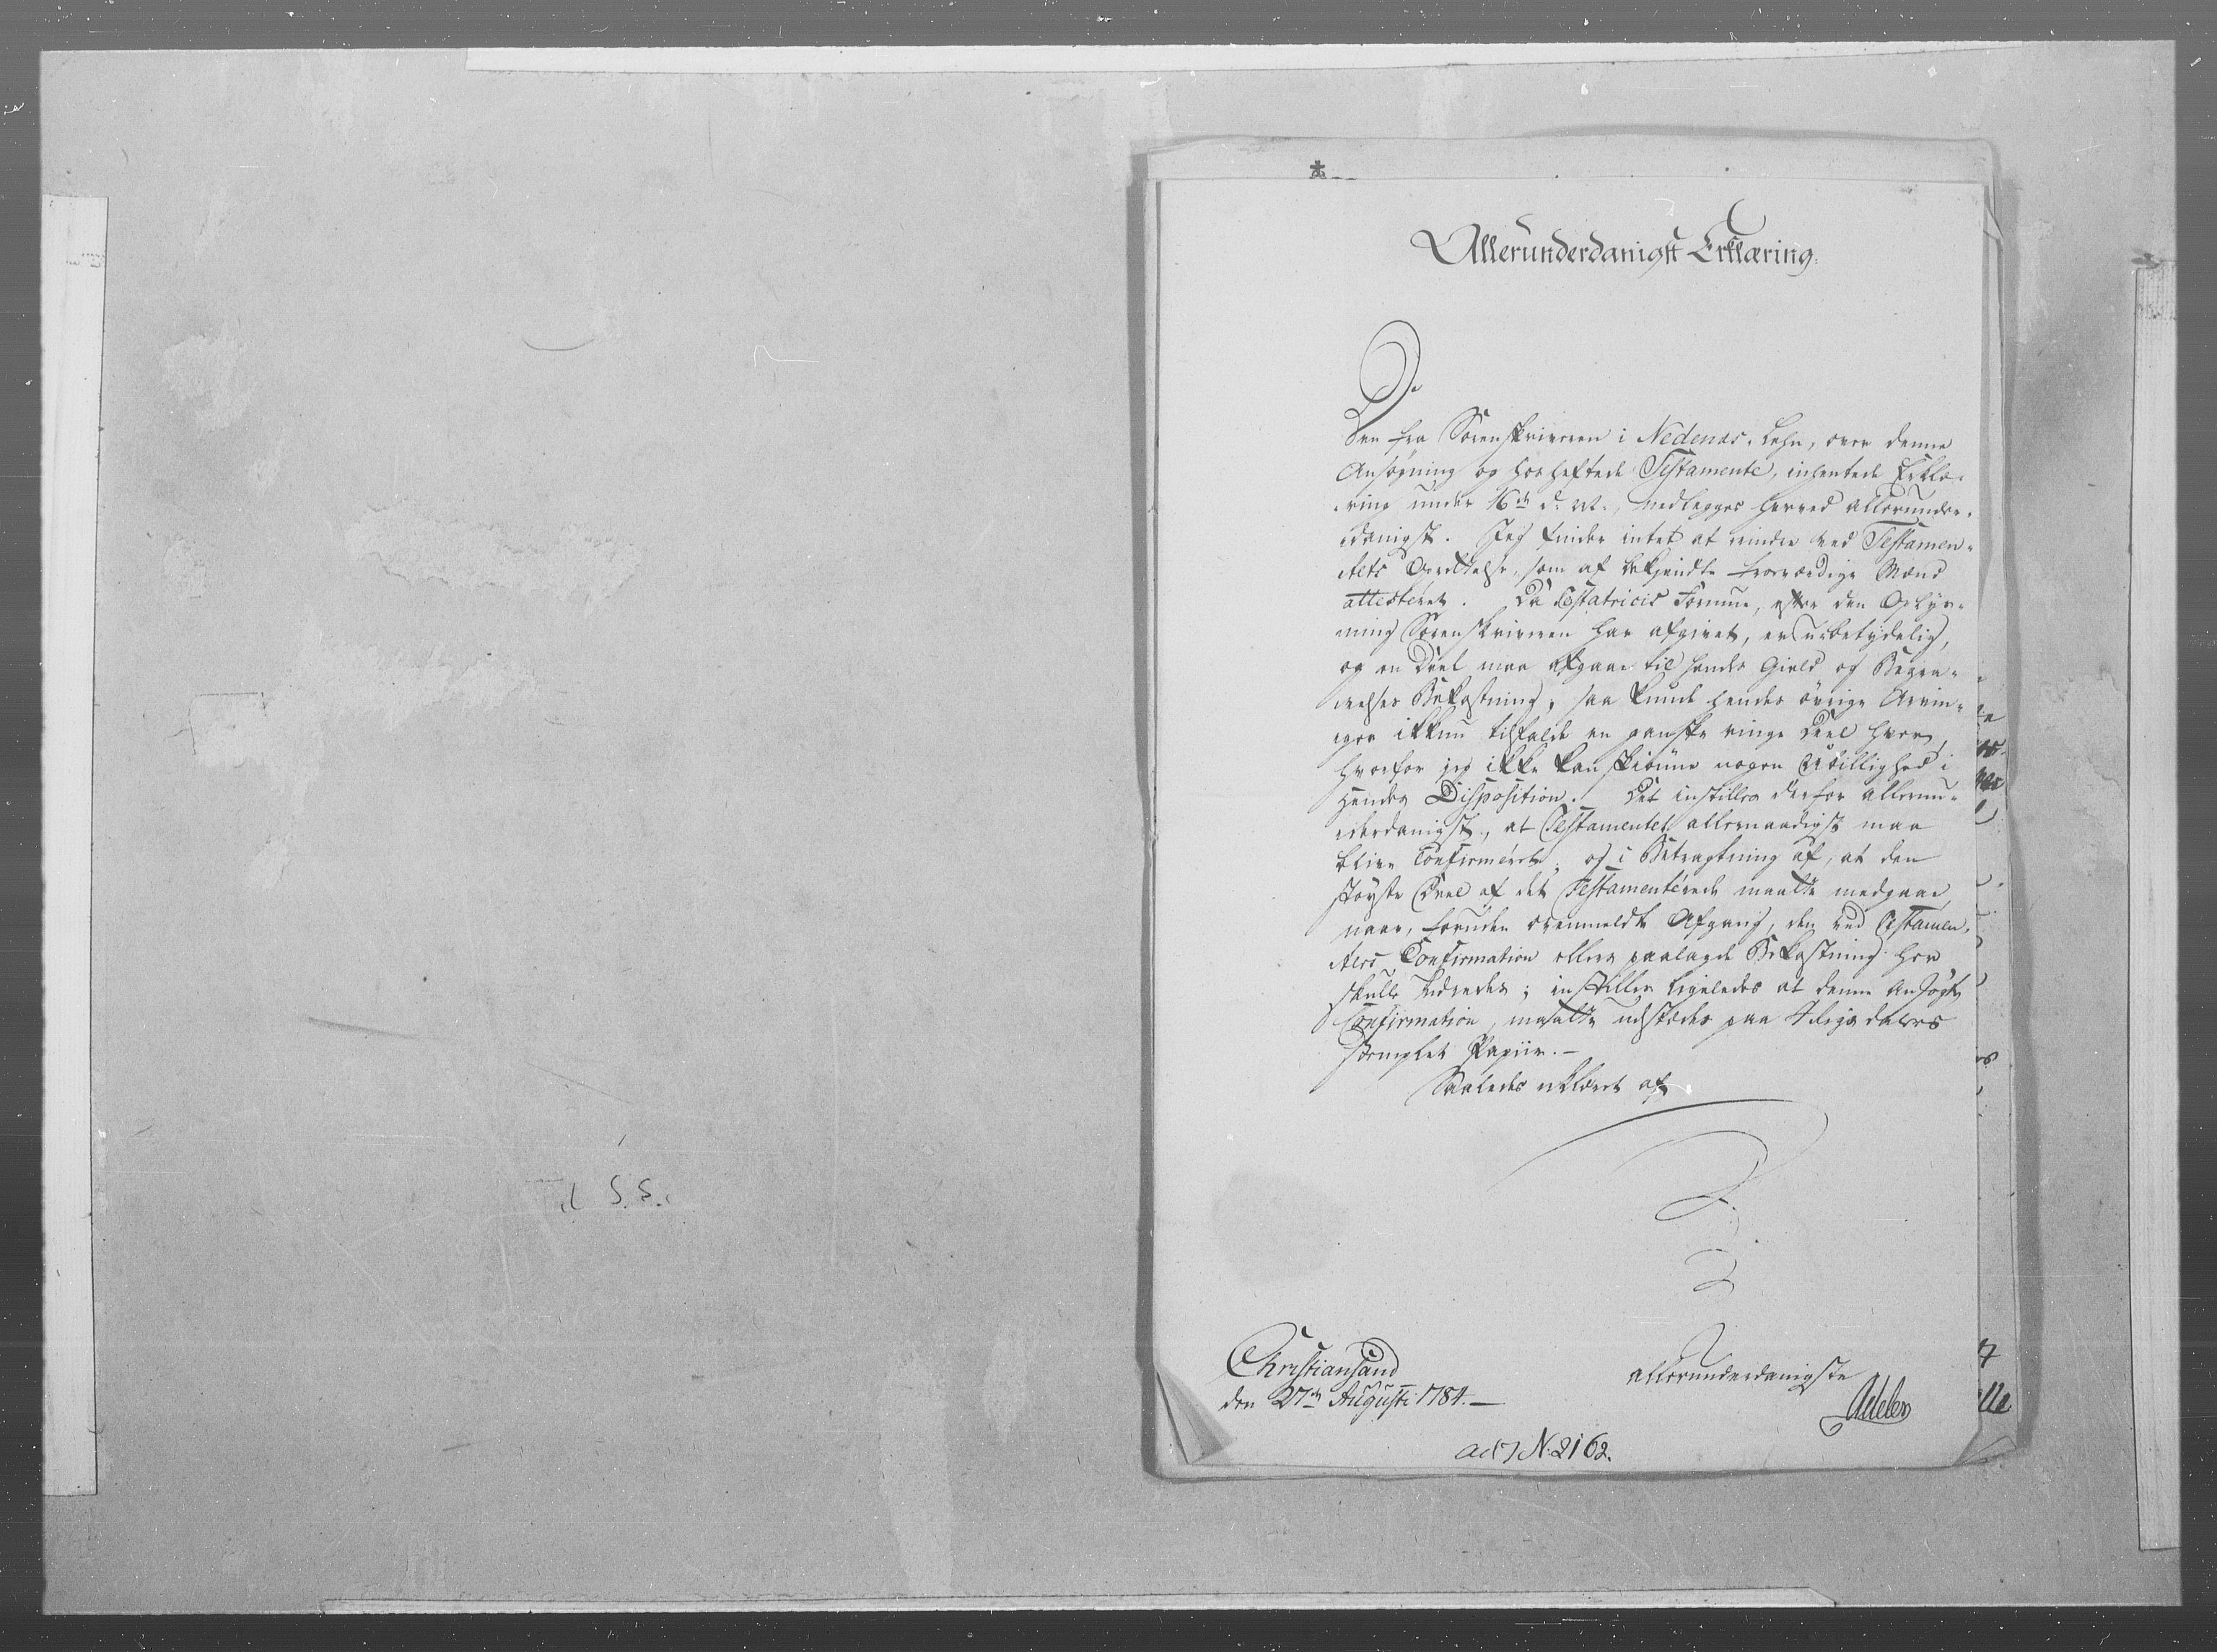 Allerunderdanigst Erklæring.
Den fra Sorenskriveren i Nedenæs Lehn, over denne
Ansøgning og hoshæftede Testamente, inhentede Erklæ-
ring under 16de d: M:, nedlegges herved allerunder-
danigst. Jeg finder intet at erindre ved Testamen-
tets Oprettelse, som af bekjendte troværdige Mænd
attesteret. Da Testatricis Formue, efter den Oplys-
ning Sorenskriveren har afgivet, er ubetydelig,
og en Deel maa afgaae til hendes Gield og Begra-
velses Bekostning, saa kunde hendes övrige Arvin-
ger ikkun tilfalde en ganske ringe Deel hver,
hvorfor jeg ikke kan skiönne nogen Ubillighed i
hendes Disposition. Det instilles derfor allerun-
derdanigst, at Testamentet allernaadigst maa
blive Confirmeret; og i Betragtning af, at den
störste Deel af det Testamenterede maatte medgaae,
naar, foruden ovenmeldte Afgang, den ved Testamen-
ters Confirmation ellers paalagde Bekostning her
skulle udredes; instilles ligeledes at denne ansögte
Confirmation, maatte udstædes paa 4 Rigsdalers
stemplet Papiir.-
Saaledes erklæret af
Christiansand
den 27de Augusti 1784.-
allerunderdanigste
Adeler
ad N: 2162.